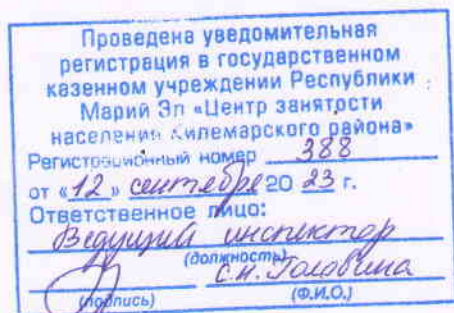 Проведена уведомительная
регистрация в государственном
казенном учреждении Республики
Марий Эл «Центр занятости
населения Килемарского района»
Регистрационный номер 388
от «12» сентября 20 23 г.
Ответственное лицо:
Ведущий инспектор
(должность)
С.Н. Головина
(подпись) (Ф.И.О.)